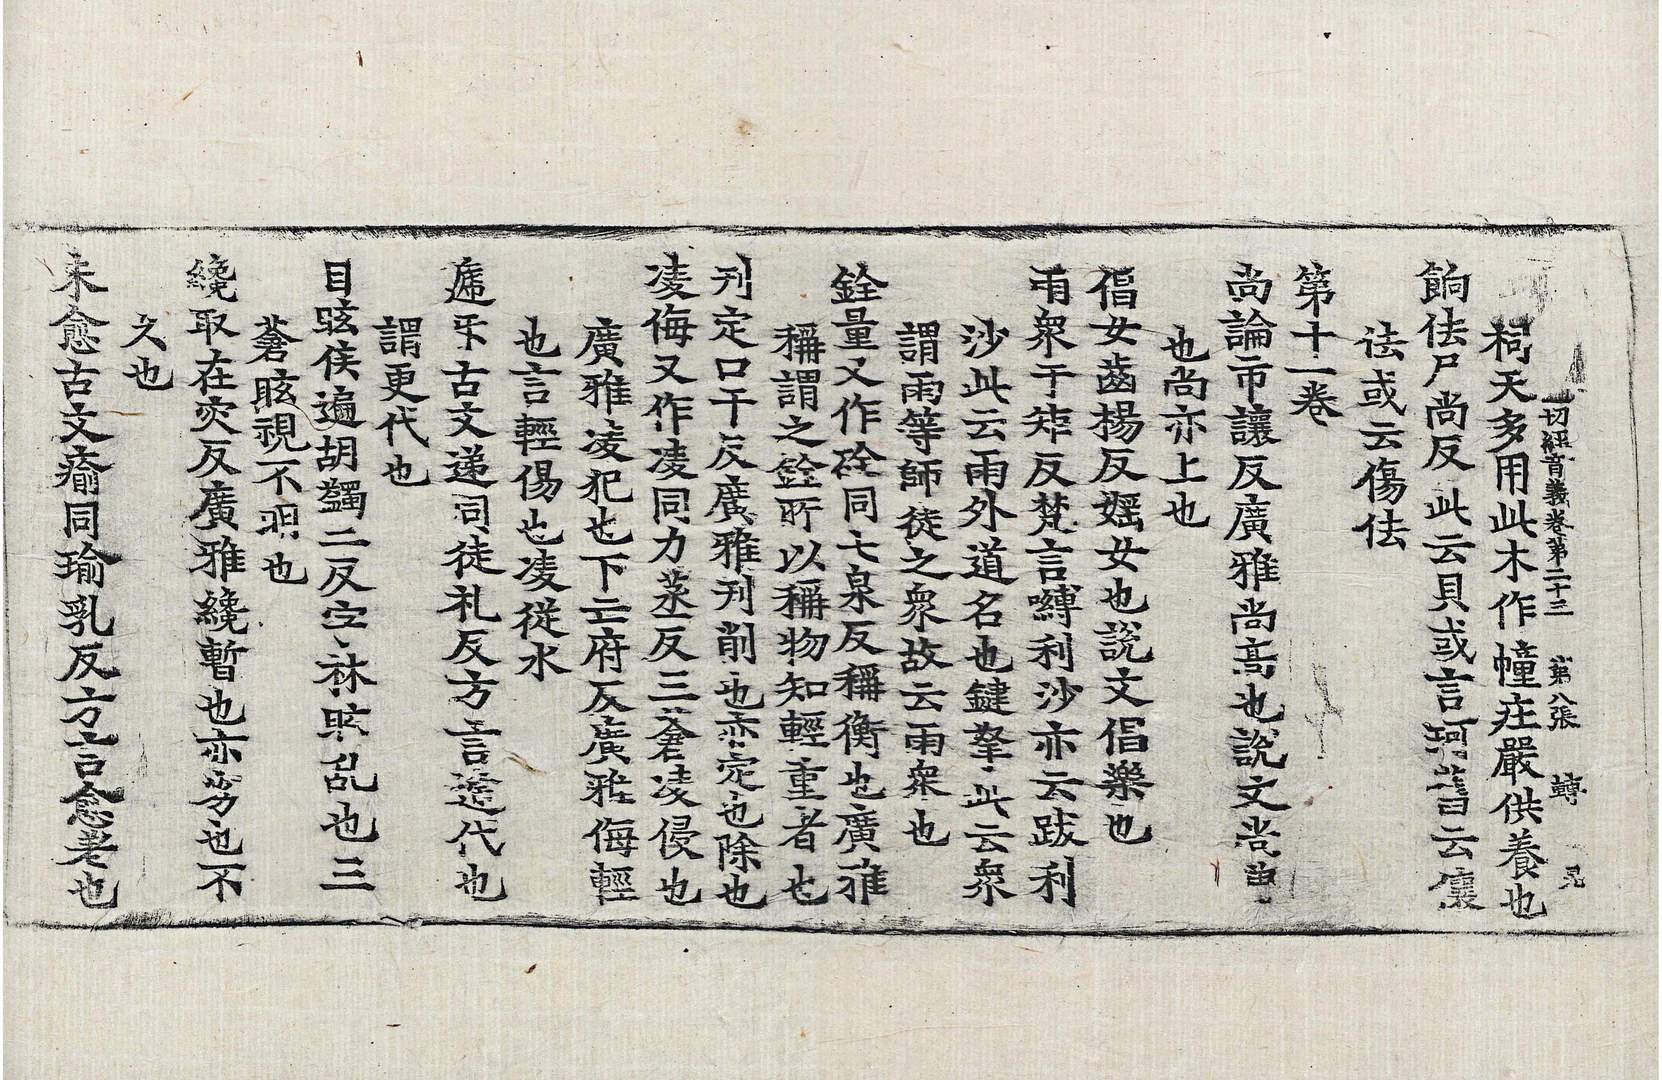 一切經音義卷第二十三 第八張 轉
祠天多用此木作幢莊嚴供養也
餉佉尸尚反此云貝或言珂舊云儴
佉或云傷佉
第十一卷
尚論市讓反廣雅尚高也說文尚曲
也尚亦上也
倡女齒楊反婬女也說文倡樂也
雨衆于矩反梵言嚩利沙亦云跋利
沙此云雨外道名也鍵拏此云衆
謂雨等師徒之衆故云雨衆也
銓量又作硂同七泉反稱衡也廣雅
稱謂之銓所以稱物知輕重者也
刊定口干反廣雅刊削也亦定也除也
凌侮又作凌同力蒸反三蒼凌侵也
廣雅凌犯也下亡府反廣雅侮輕
也言輕傷也凌從水
遞乐古文递同徒礼反方言遞代也
謂更代也
目眩侯遍胡蠲二反字林眩乱也三
蒼眩視不明也
纔取在灾反廣雅纔暫也亦劣也不
久也
未愈古文瘉同瑜乳反方言愈差也